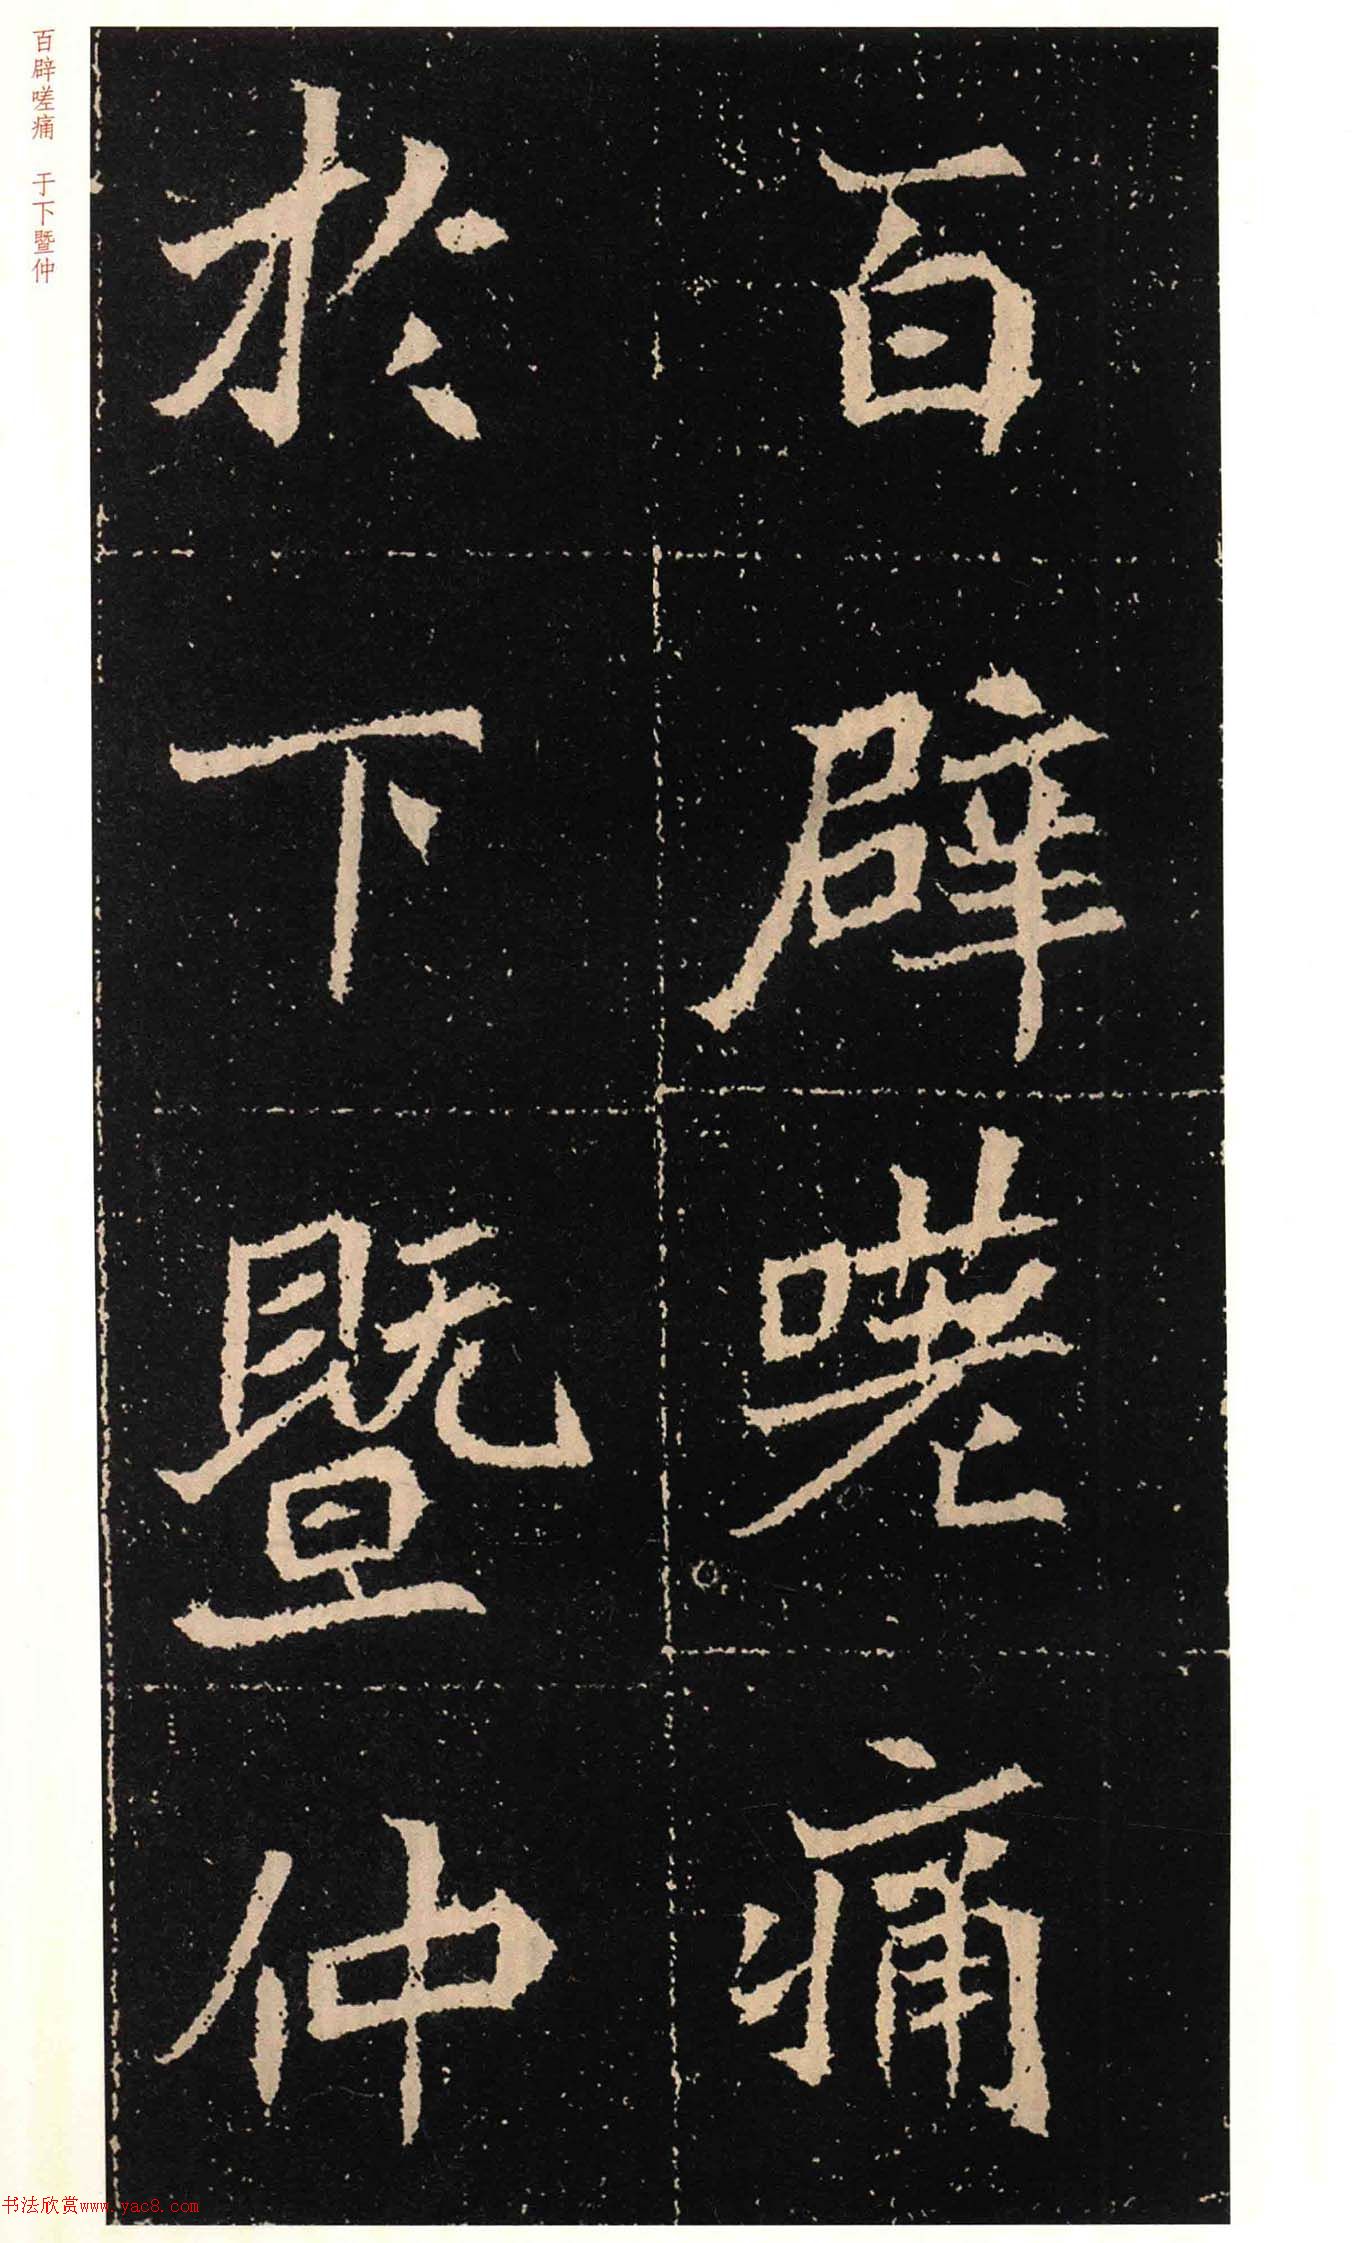 百辟嗟痛
於下暨仲
百辟嗟痛 于下暨仲
书法欣赏www.yac8.com